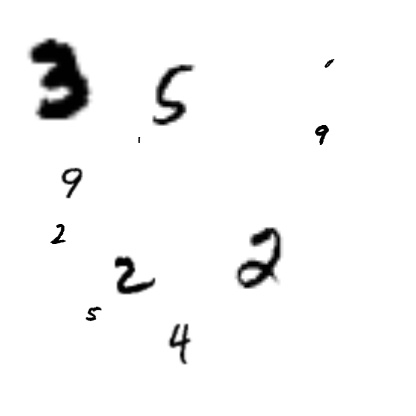 3 5
9
9
2
2 2
5
4